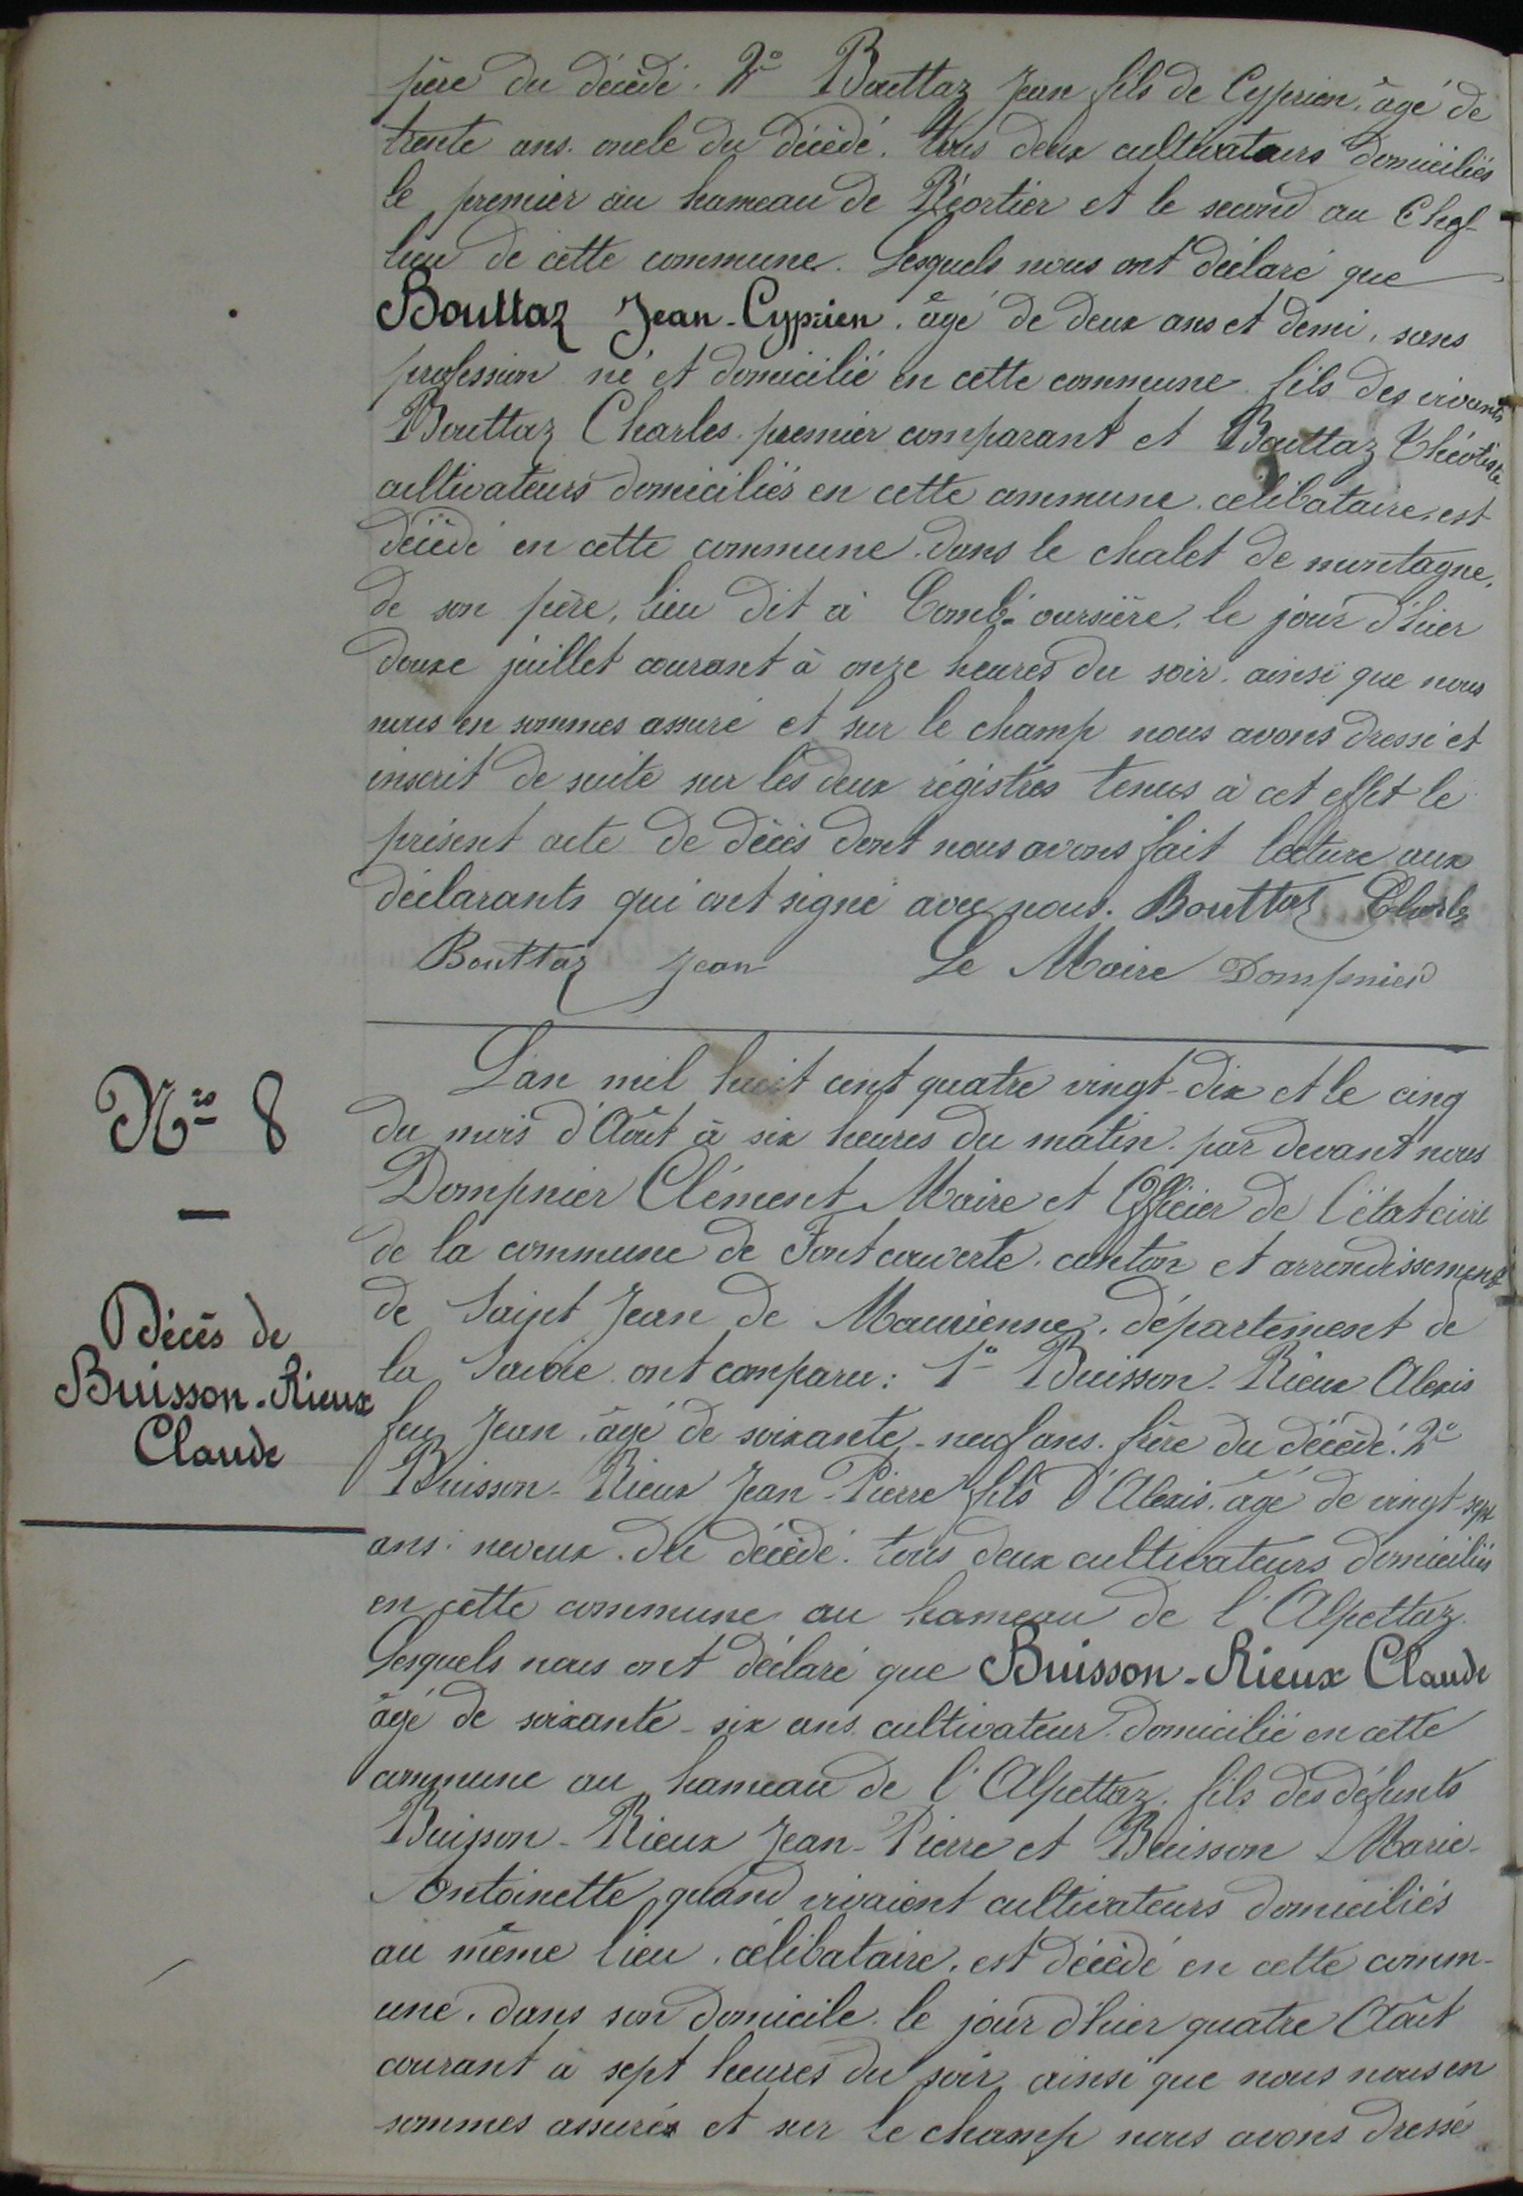 père du décédé. 2° Bouttaz Jean fils de Cyprien, âgé de
trente ans. oncle du décédé. tous deux cultivateurs domiciliés
le premier au hameau de Réortier et le second au Chef-
lieu de cette commune. Lesquels nous ont déclaré que
Bouttaz Jean-Cyprien, âgé de deux ans et demi, sans
profession né et domicilié en cette commune fils des vivants
Bouttaz Charles premier comparant et Bouttaz Théotiste
cultivateurs domiciliés en cette commune. célibataire, est
décédé en cette commune, dans le chalet de montagne,
de son père, lieu dit à Comb'oursière, le jour d'hier
douze juillet courant à onze heures du soir. ainsi que nous
nous en sommes assuré et sur le champ nous avons dressé et
inscrit de suite sur les deux régistres tenus à cet effet le
présent acte de décès dont nous avons fait lecture aux
déclarants qui ont signé avec nous. Bouttaz Charles
Bouttaz Jean Le Maire Dompnier
L'an mil huit cent quatre vingt-dix et le cinq
du mois d'Août à six heures du matin. par devant nous
Dompnier Clément Maire et Officier de l'état civil
de la commune de Fontcouverte, canton et arrondissement
de Saint Jean de Maurienne, département de
la Savoie ont comparu: 1° Buisson-Rieux Alexis
feu Jean, âgé de soixante-neuf ans. frère du décédé. 2°
Buisson-Rieux Jean-Pierre fils d'Alexis. âgé de vingt-sept
ans. neveux du décédé. tous deux cultivateurs domiciliés
en cette commune au hameau de l'Alpettaz.
Lesquels nous ont déclaré que Buisson-Rieux Claude
âgé de soixante-six ans cultivateur domicilié en cette
commune au hameau de l'Alpettaz, fils des défunts
Buisson-Rieux Jean-Pierre et Buisson Marie-
Antoinette quand vivaient cultivateurs domiciliés
au même lieu, célibataire, est décédé en cette comm-
une, dans son domicile le jour d'hier quatre Août
courant à sept heures du soir ainsi que nous nous en
sommes assurés et sur le champ nous avons dressé
Nro 8
Décès de
Buisson-Rieux
Claude